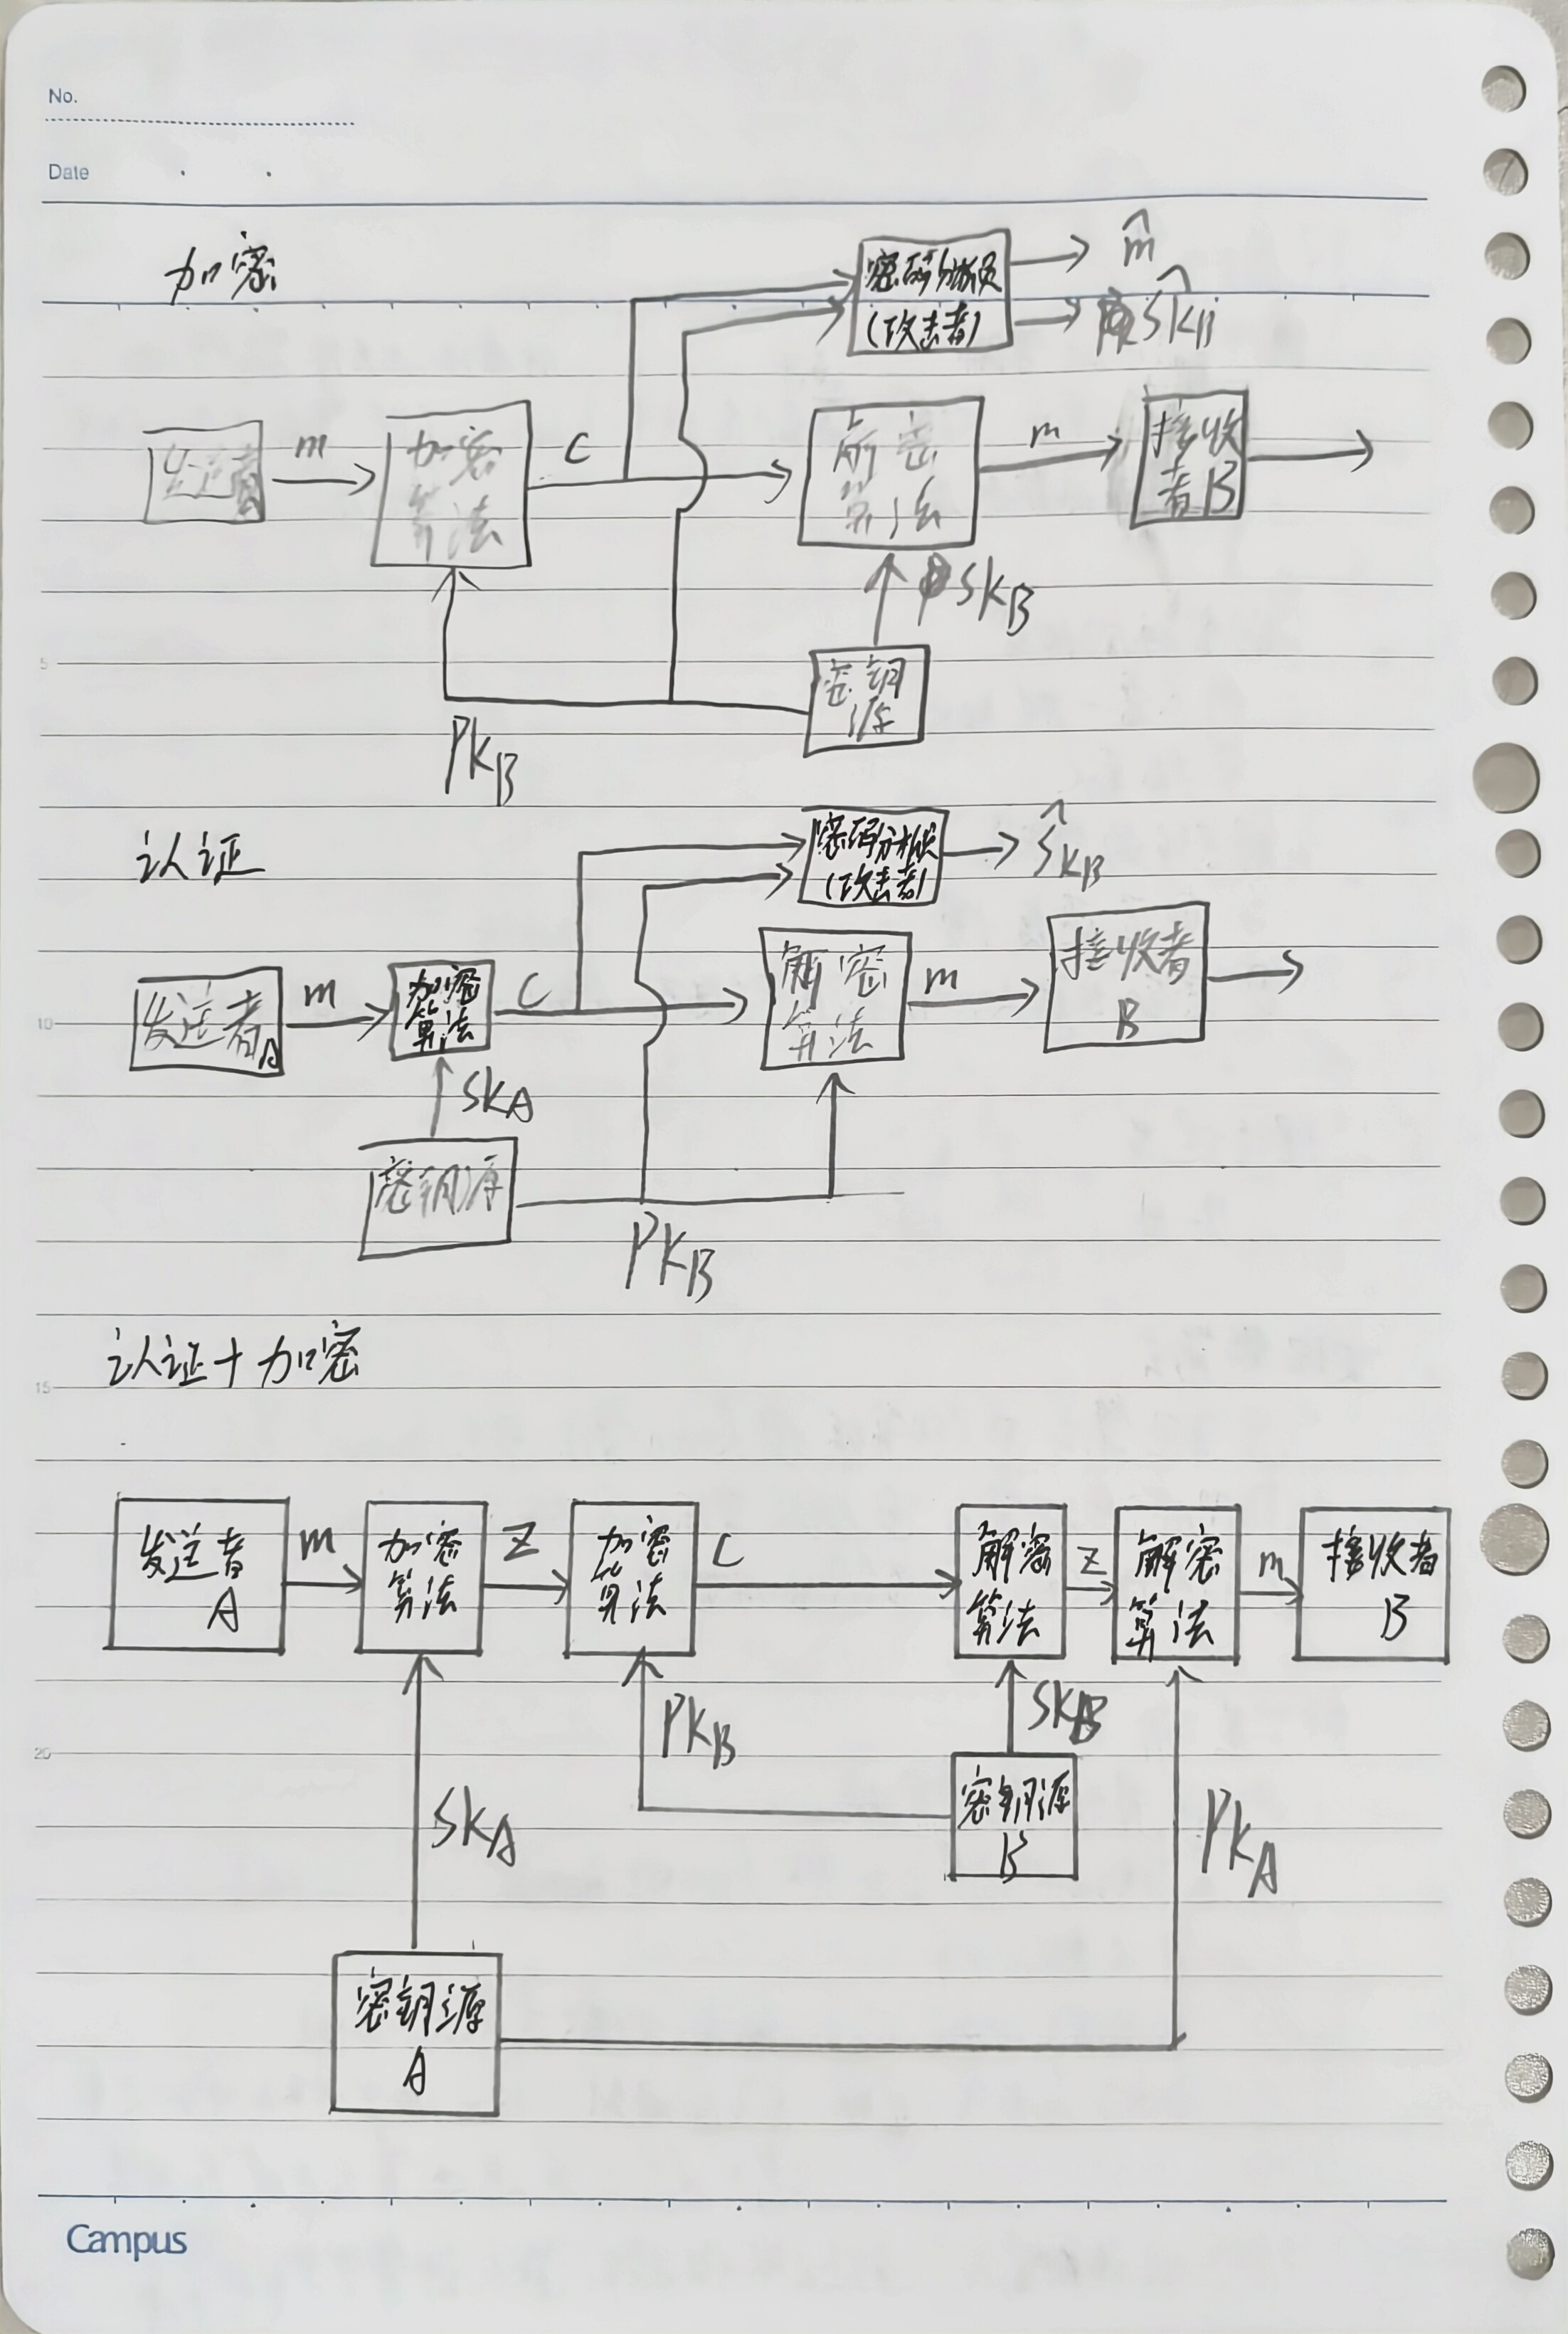 No.
Date
加密
密码分析员
(攻击者)
m̂
ŜK_B
发送者
m
加密
算法
C
解密
算法
m
接收
者B
SK_B
5
密钥
源
PK_B
认证
密码分析员
(攻击者)
ŜK_B
发送者A
m
加密
算法
C
解密
算法
m
接收者
B
10
SK_A
密钥源
PK_B
认证+加密
15
发送者
A
m
加密
算法
Z
加密
算法
C
解密
算法
Z
解密
算法
m
接收者
B
PK_B
SK_B
20
密钥源
B
SK_A
PK_A
密钥源
A
Campus